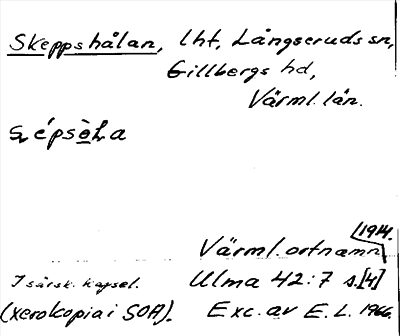 Skeppshålan, lht, Långseruds sn,
Gillbergs hd,
Värml. län.
1914.
Värml. ortnamn
I särsk. kapsel. Ulma 42:7 s.[4]
(xerokopia i SOA). Exc. av E. L. 1966.